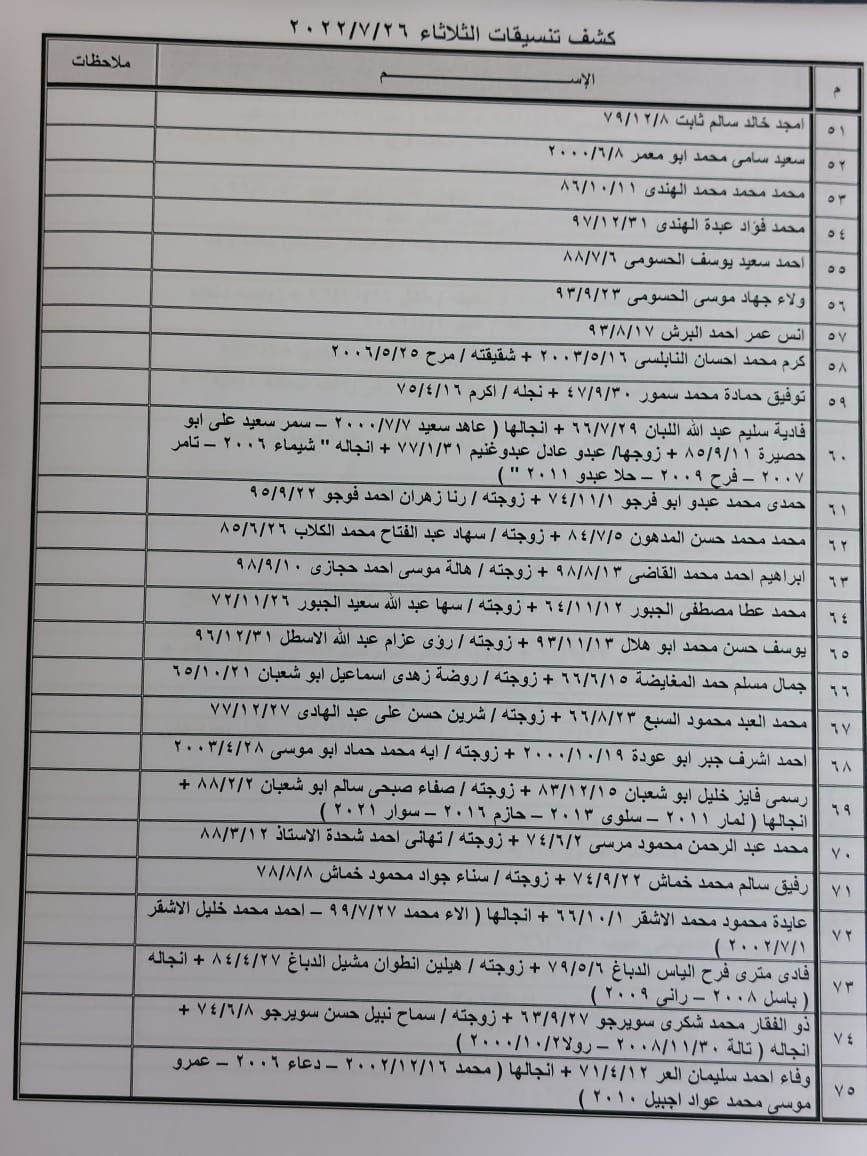 كشف تنسيقات الثلاثاء ٢٠٢٢/٧/٢٦
م الإســـــم ملاحظات
٥١ امجد خالد سالم ثابت ٧٩/١٢/٨
٥٢ سعيد سامى محمد ابو معمر ٢٠٠٠/٦/٨
٥٣ محمد محمد محمد الهندى ٨٦/١٠/١١
٥٤ محمد فؤاد عبدة الهندى ٩٧/١٢/٣١
٥٥ احمد سعيد يوسف الحسومى ٨٨/٧/٦
٥٦ ولاء جهاد موسى الحسومى ٩٣/٩/٢٣
٥٧ انس عمر احمد البرش ٩٣/٨/١٧
٥٨ كرم محمد احسان النابلسى ٢٠٠٣/٥/١٦ + شقيقته / مرح ٢٠٠٦/٥/٢٥
٥٩ توفيق حمادة محمد سمور ٤٧/٩/٣٠ + نجله / اكرم ٧٥/٤/١٦
٦٠ فادية سليم عبد الله اللبان ٦٦/٧/٢٩ + انجالها ( عاهد سعيد ٢٠٠٠/٧/٧ – سمر سعيد على ابو
حصيرة ٨٥/٩/١١ + زوجها/ عبدو عادل عبدوغنيم ٧٧/١/٣١ + انجاله " شيماء ٢٠٠٦ – تامر
٢٠٠٧ – فرح ٢٠٠٩ – حلا عبدو ٢٠١١ " )
٦١ حمدى محمد عبدو ابو فرجو ٧٤/١١/١ + زوجته / رنا زهران احمد فوجو ٩٥/٩/٢٢
٦٢ محمد محمد حسن المدهون ٨٤/٧/٥ + زوجته / سهاد عبد الفتاح محمد الكلاب ٨٥/٦/٢٦
٦٣ ابراهيم احمد محمد القاضى ٩٨/٨/١٣ + زوجته / هالة موسى احمد حجازى ٩٨/٩/١٠
٦٤ محمد عطا مصطفى الجبور ٦٤/١١/١٢ + زوجته / سها عبد الله سعيد الجبور ٧٢/١١/٢٦
٦٥ يوسف حسن محمد ابو هلال ٩٣/١١/١٣ + زوجته / رؤى عزام عبد الله الاسطل ٩٦/١٢/٣١
٦٦ جمال مسلم حمد المغايضة ٦٦/٦/١٥ + زوجته / روضة زهدى اسماعيل ابو شعبان ٦٥/١٠/٢١
٦٧ محمد العبد محمود السبع ٦٦/٨/٢٣ + زوجته / شرين حسن على عبد الهادى ٧٧/١٢/٢٧
٦٨ احمد اشرف جبر ابو عودة ٢٠٠٠/١٠/١٩ + زوجته / ايه محمد حماد ابو موسى ٢٠٠٣/٤/٢٨
٦٩ رسمى فايز خليل ابو شعبان ٨٣/١٢/١٥ + زوجته / صفاء صبحى سالم ابو شعبان ٨٨/٢/٢ +
انجالها ( لمار ٢٠١١ – سلوى ٢٠١٣ – حازم ٢٠١٦ – سوار ٢٠٢١ )
٧٠ محمد عبد الرحمن محمود مرسى ٧٤/٦/٢ + زوجته / تهانى احمد شحدة الاستاذ ٨٨/٣/١٢
٧١ رفيق سالم محمد خماش ٧٤/٩/٢٢ + زوجته / سناء جواد محمود خماش ٧٨/٨/٨
٧٢ عايدة محمود محمد الاشقر ٦٦/١٠/١ + انجالها ( الاء محمد ٩٩/٧/٢٧ – احمد محمد خليل الاشقر
٢٠٠٢/٧/١ )
٧٣ فادى مترى فرح الياس الدباغ ٧٩/٥/٦ + زوجته / هيلين انطوان مشيل الدباغ ٨٤/٤/٢٧ + انجاله
( باسل ٢٠٠٨ – رانى ٢٠٠٩ )
٧٤ ذو الفقار محمد شكرى سويرجو ٦٣/٩/٢٧ + زوجته / سماح نبيل حسن سويرجو ٧٤/٦/٨ +
انجاله ( تالة ٢٠٠٨/١١/٣٠ – رولا ٢٠٠٠/١٠/٢ )
٧٥ وفاء احمد سليمان العر ٧١/٤/١٢ + انجالها ( محمد ٢٠٠٢/١٢/١٦ – دعاء ٢٠٠٦ – عمرو
موسى محمد عواد اجبيل ٢٠١٠ )